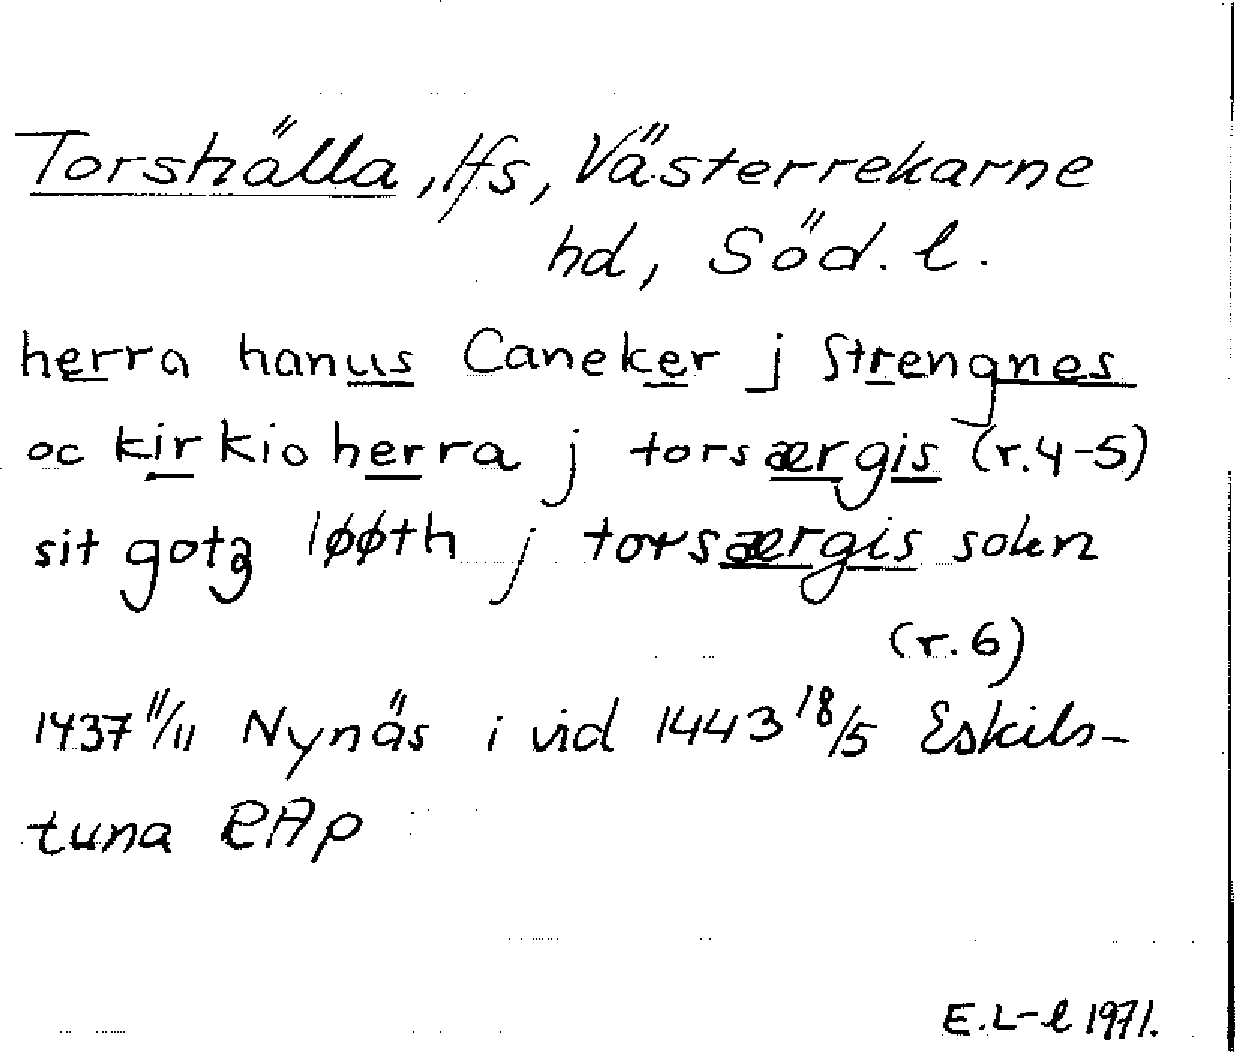 Torshälla, lfs, Västerrekarne
hd, Söd. l.
herra hanus Caneker j Strengnes
oc kirkioherra j torsærgis (r.4-5)
sit gotz løøth j torsærgis sokn
(r.6)
1437 11/11 Nynäs i vid 1443 18/5 Eskils-
tuna RAp
E.L-l 1971.